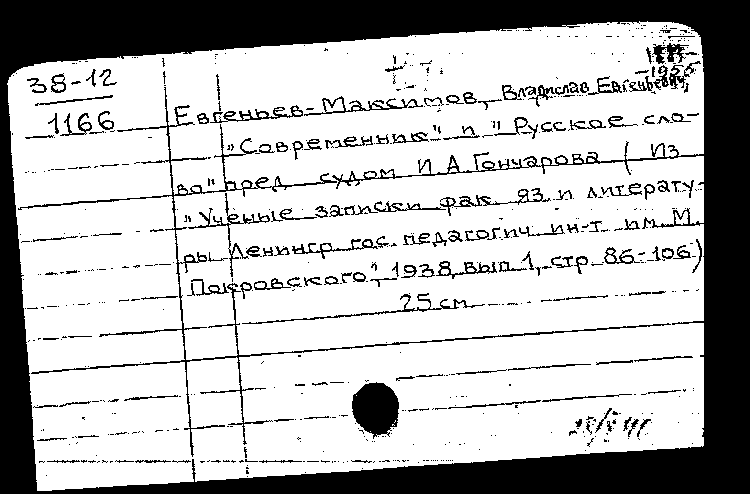 38-12
1166
1883-
-1955
Евгеньев-Максимов, Владислав Евгеньевич,
"Современник" и "Русское сло-
во" пред судом И.А.Гончарова (Из
"Ученые записки фак. яз. и литерату-
ры Ленингр. гос. педагогич. ин-т им. М.
Покровского", 1938, вып. 1, стр. 86-106)
25 см.